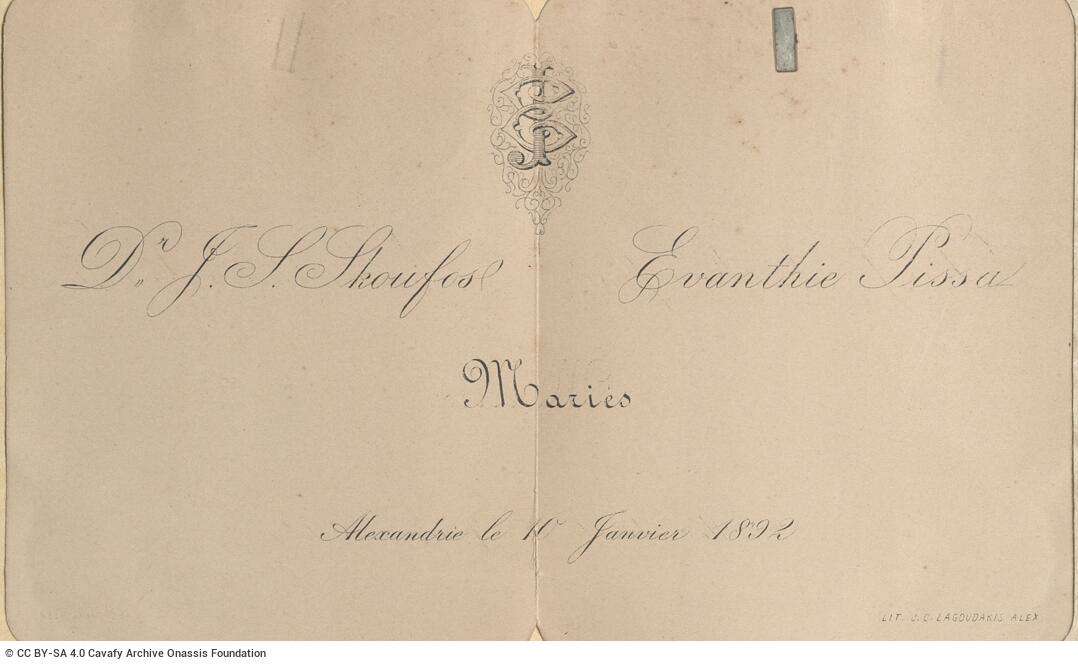 Dr. J. S. Skoufos Evanthie Pissa
Mariés
Alexandrie le 10 Janvier 1892
LIT. J. C. LAGOUDAKIS ALEX
© CC BY-SA 4.0 Cavafy Archive Onassis Foundation